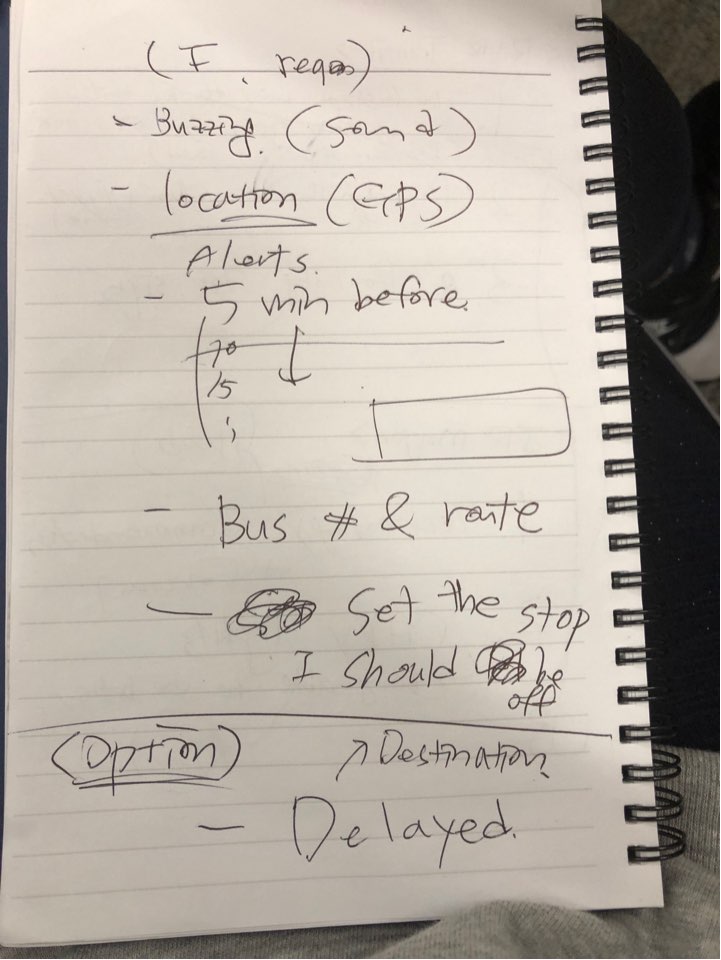 (F. reqs)
- Buzzing. (Sound)
- location (GPS)
Alerts.
- 5 min before.
10
15
- Bus # & route
- Set the stop
I should be
off
(Option) ↗Destination.
- Delayed.